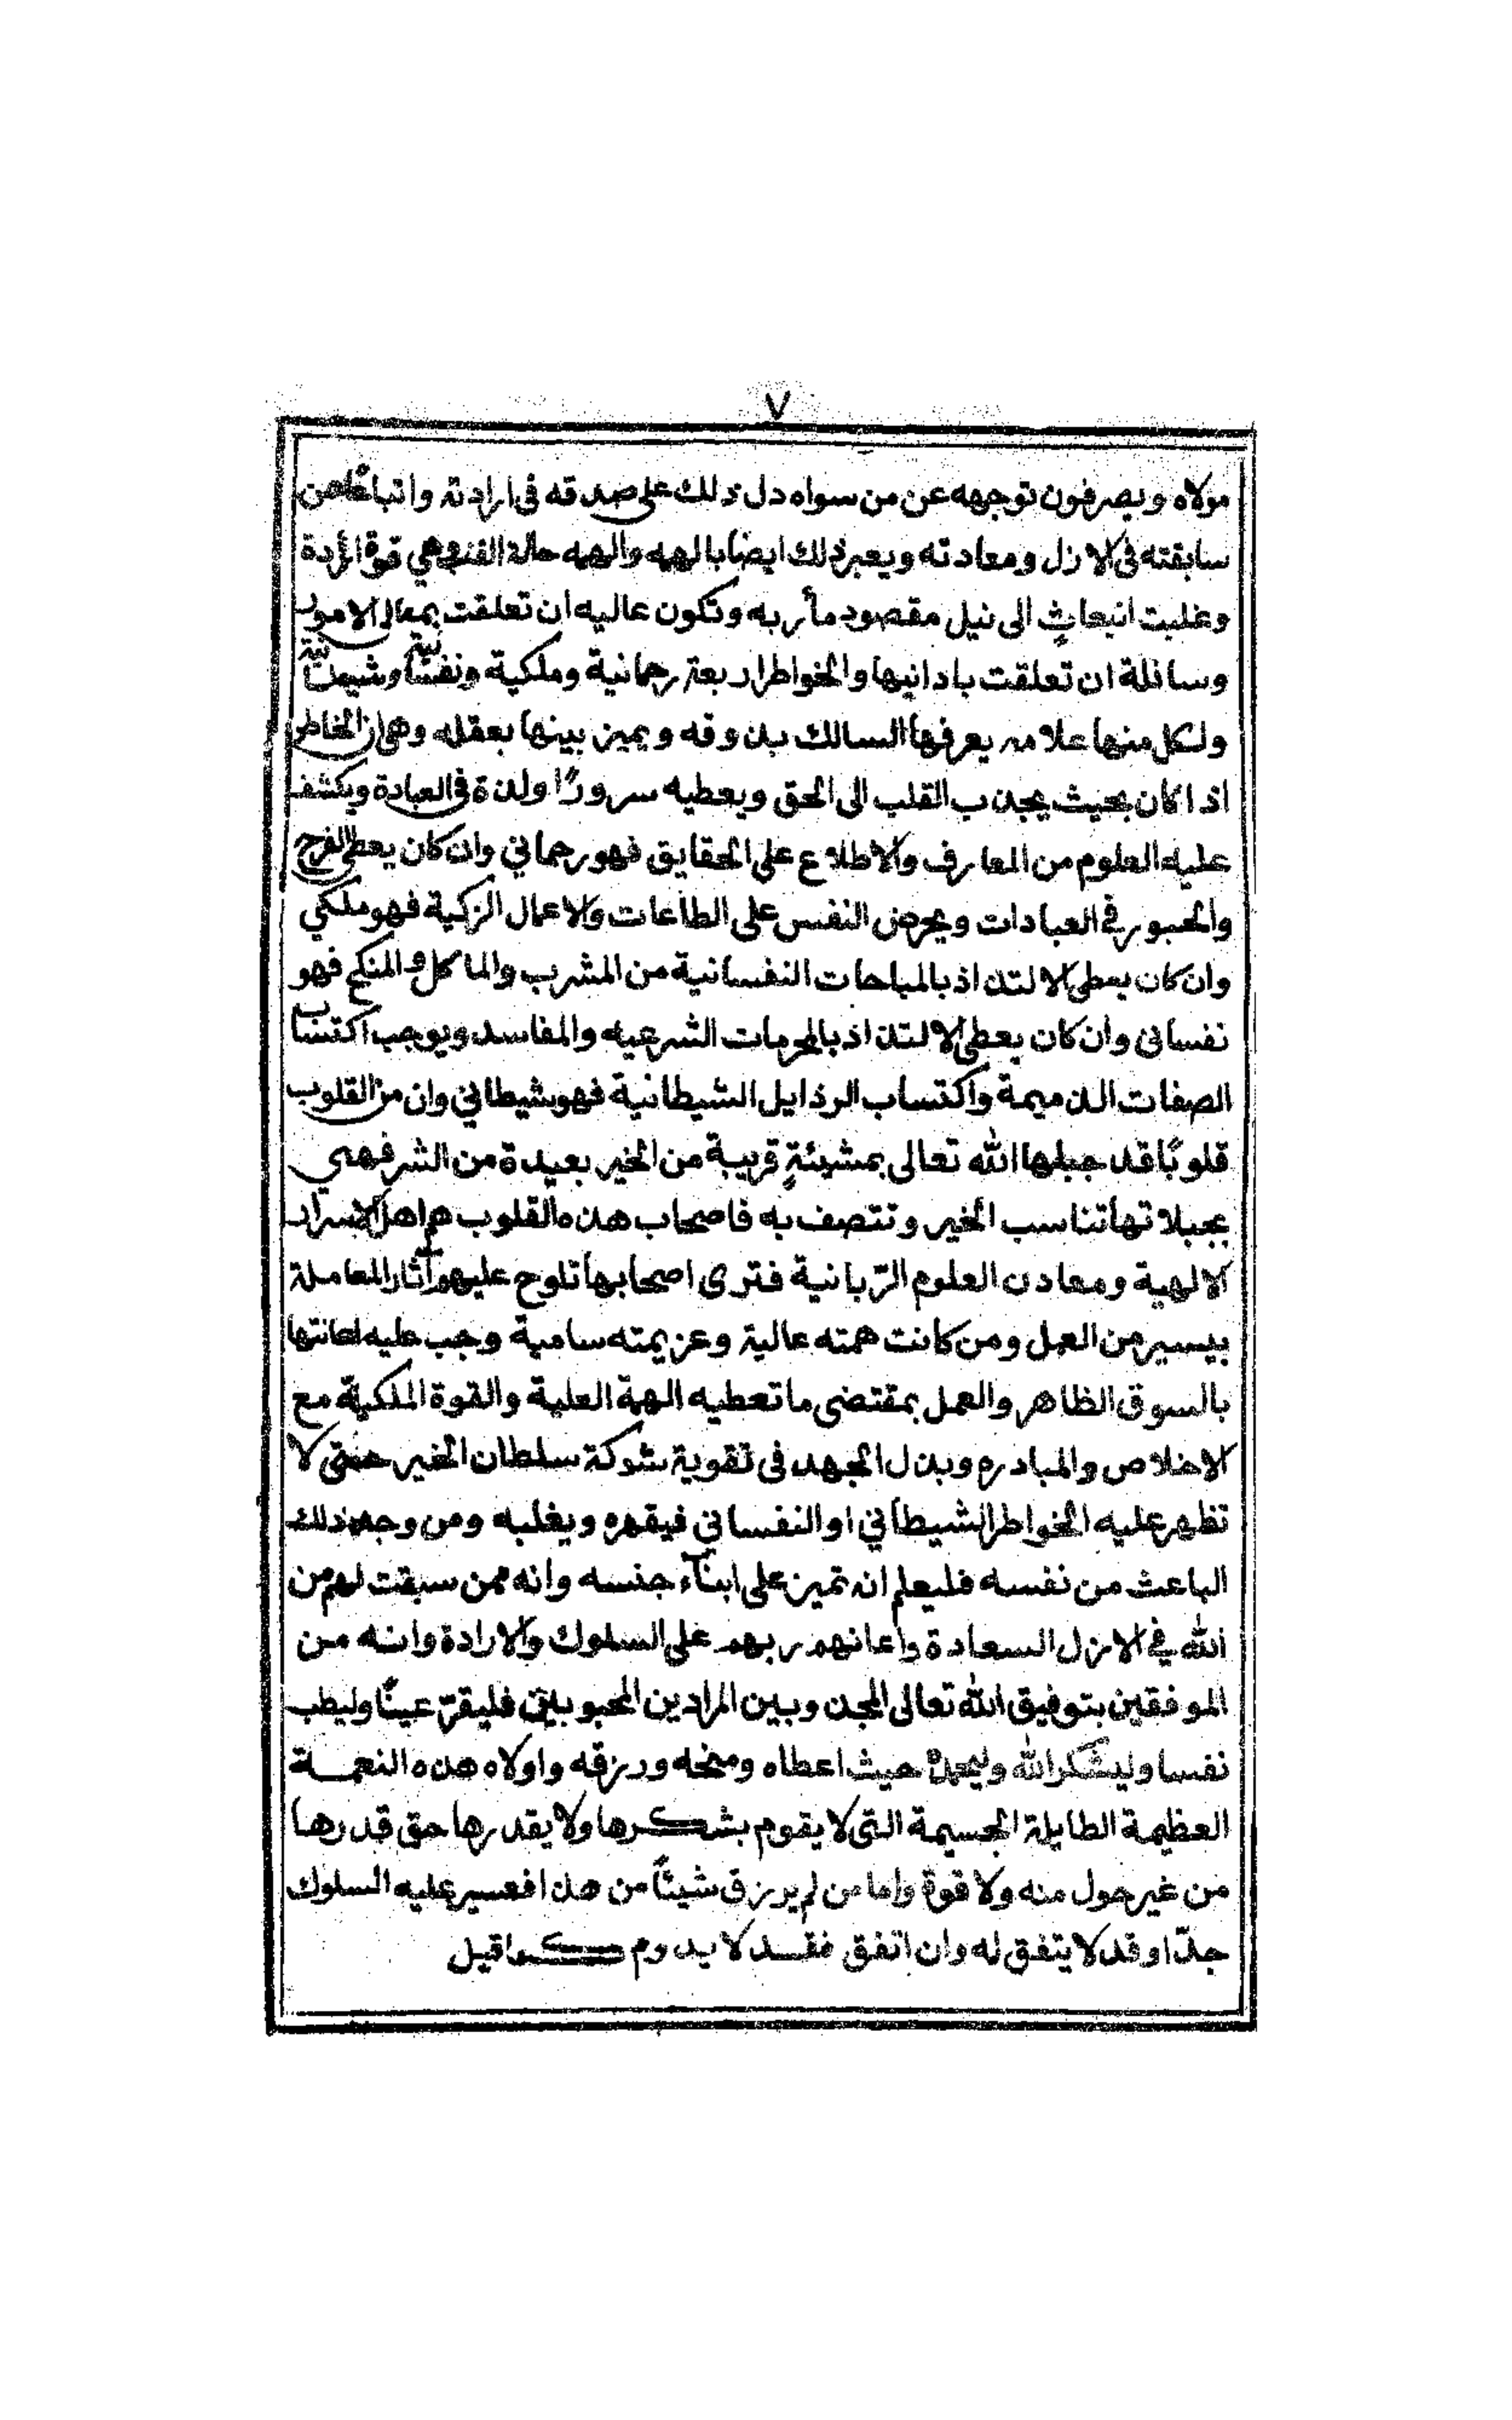 ٧
مولاه ويصرفون توجهه عن من سواه دل ذلك على صدقه فى ارادته واتباعًا من
سابقته فى الازل ومعادته ويعبر ذلك ايضا بالهمه والهمه حالة القلب وهي قوة ارادة
وغلبت انبعاثٍ الى نيل مقصود مأربه وتكون عاليه ان تعلقت بمعالى الامور
وسافلة ان تعلقت بادانيها والخواطر اربعة رحمانية وملكية ونفسانية وشيطانية
ولكل منها علامه يعرفها السالك بذوقه ويميز بينها بعقله وهى ان الخاطر
اذا كان بحيث يجذب القلب الى الحق ويعطيه سرورًا ولذة فى العبادة ويكشف
عليه العلوم من المعارف والاطلاع على الحقايق فهو رحماني وان كان يعطى الفرح
والحبور في العبادات ويحرض النفس على الطاعات والاعمال الزكية فهو ملكي
وان كان يعطى الالتذاذ بالمباحات النفسانية من المشرب والماكل والمنكح فهو
نفسانى وان كان يعطى الالتذاذ بالمحرمات الشرعيه والمفاسد ويوجب اكتساب
الصفات الذميمة واكتساب الرذايل الشيطانية فهو شيطاني وان من القلوب
قلوبًا قد جبلها الله تعالى بمشيئةٍ قريبة من الخير بعيدة من الشر فهى
بجبلاتها تناسب الخير وتتصف به فاصحاب هذه القلوب هم اهل الاسرار
الالهية ومعادن العلوم الرّبانية فترى اصحابها تلوح عليهم آثار المعاملة
بيسير من العمل ومن كانت همته عالية وعزيمته سامية وجب عليه اعانتها
بالسوق الظاهر والعمل بمقتضى ما تعطيه الهمة العلية والقوة الملكية مع
الاخلاص والمبادره وبذل الجهد فى تقوية شوكة سلطان الخير حتى لا
تظهر عليه الخواطر الشيطاني او النفساني فيقهره ويغلبه ومن وجد ذلك
الباعث من نفسه فليعلم انه تميز على ابنآء جنسه وانه ممن سبقت لهم من
الله في الازل السعادة واعانهم ربهم على السلوك والارادة وانه من
الموفقين بتوفيق الله تعالى المجذوبين المرادين المحبوبين فليقرّ عينًا وليطب
نفسا وليشكر الله وليحمده حيث اعطاه ومنحه ورزقه واولاه هذه النعمة
العظيمة الطايلة الجسيمة التى لا يقوم بشكرها ولا يقدرها حق قدرها
من غير حول منه ولا قوة واما من لم يرزق شيئًا من هذا فعسير عليه السلوك
جدّا وقد لا يتفق له وان اتفق فقد لا يدوم كما قيل